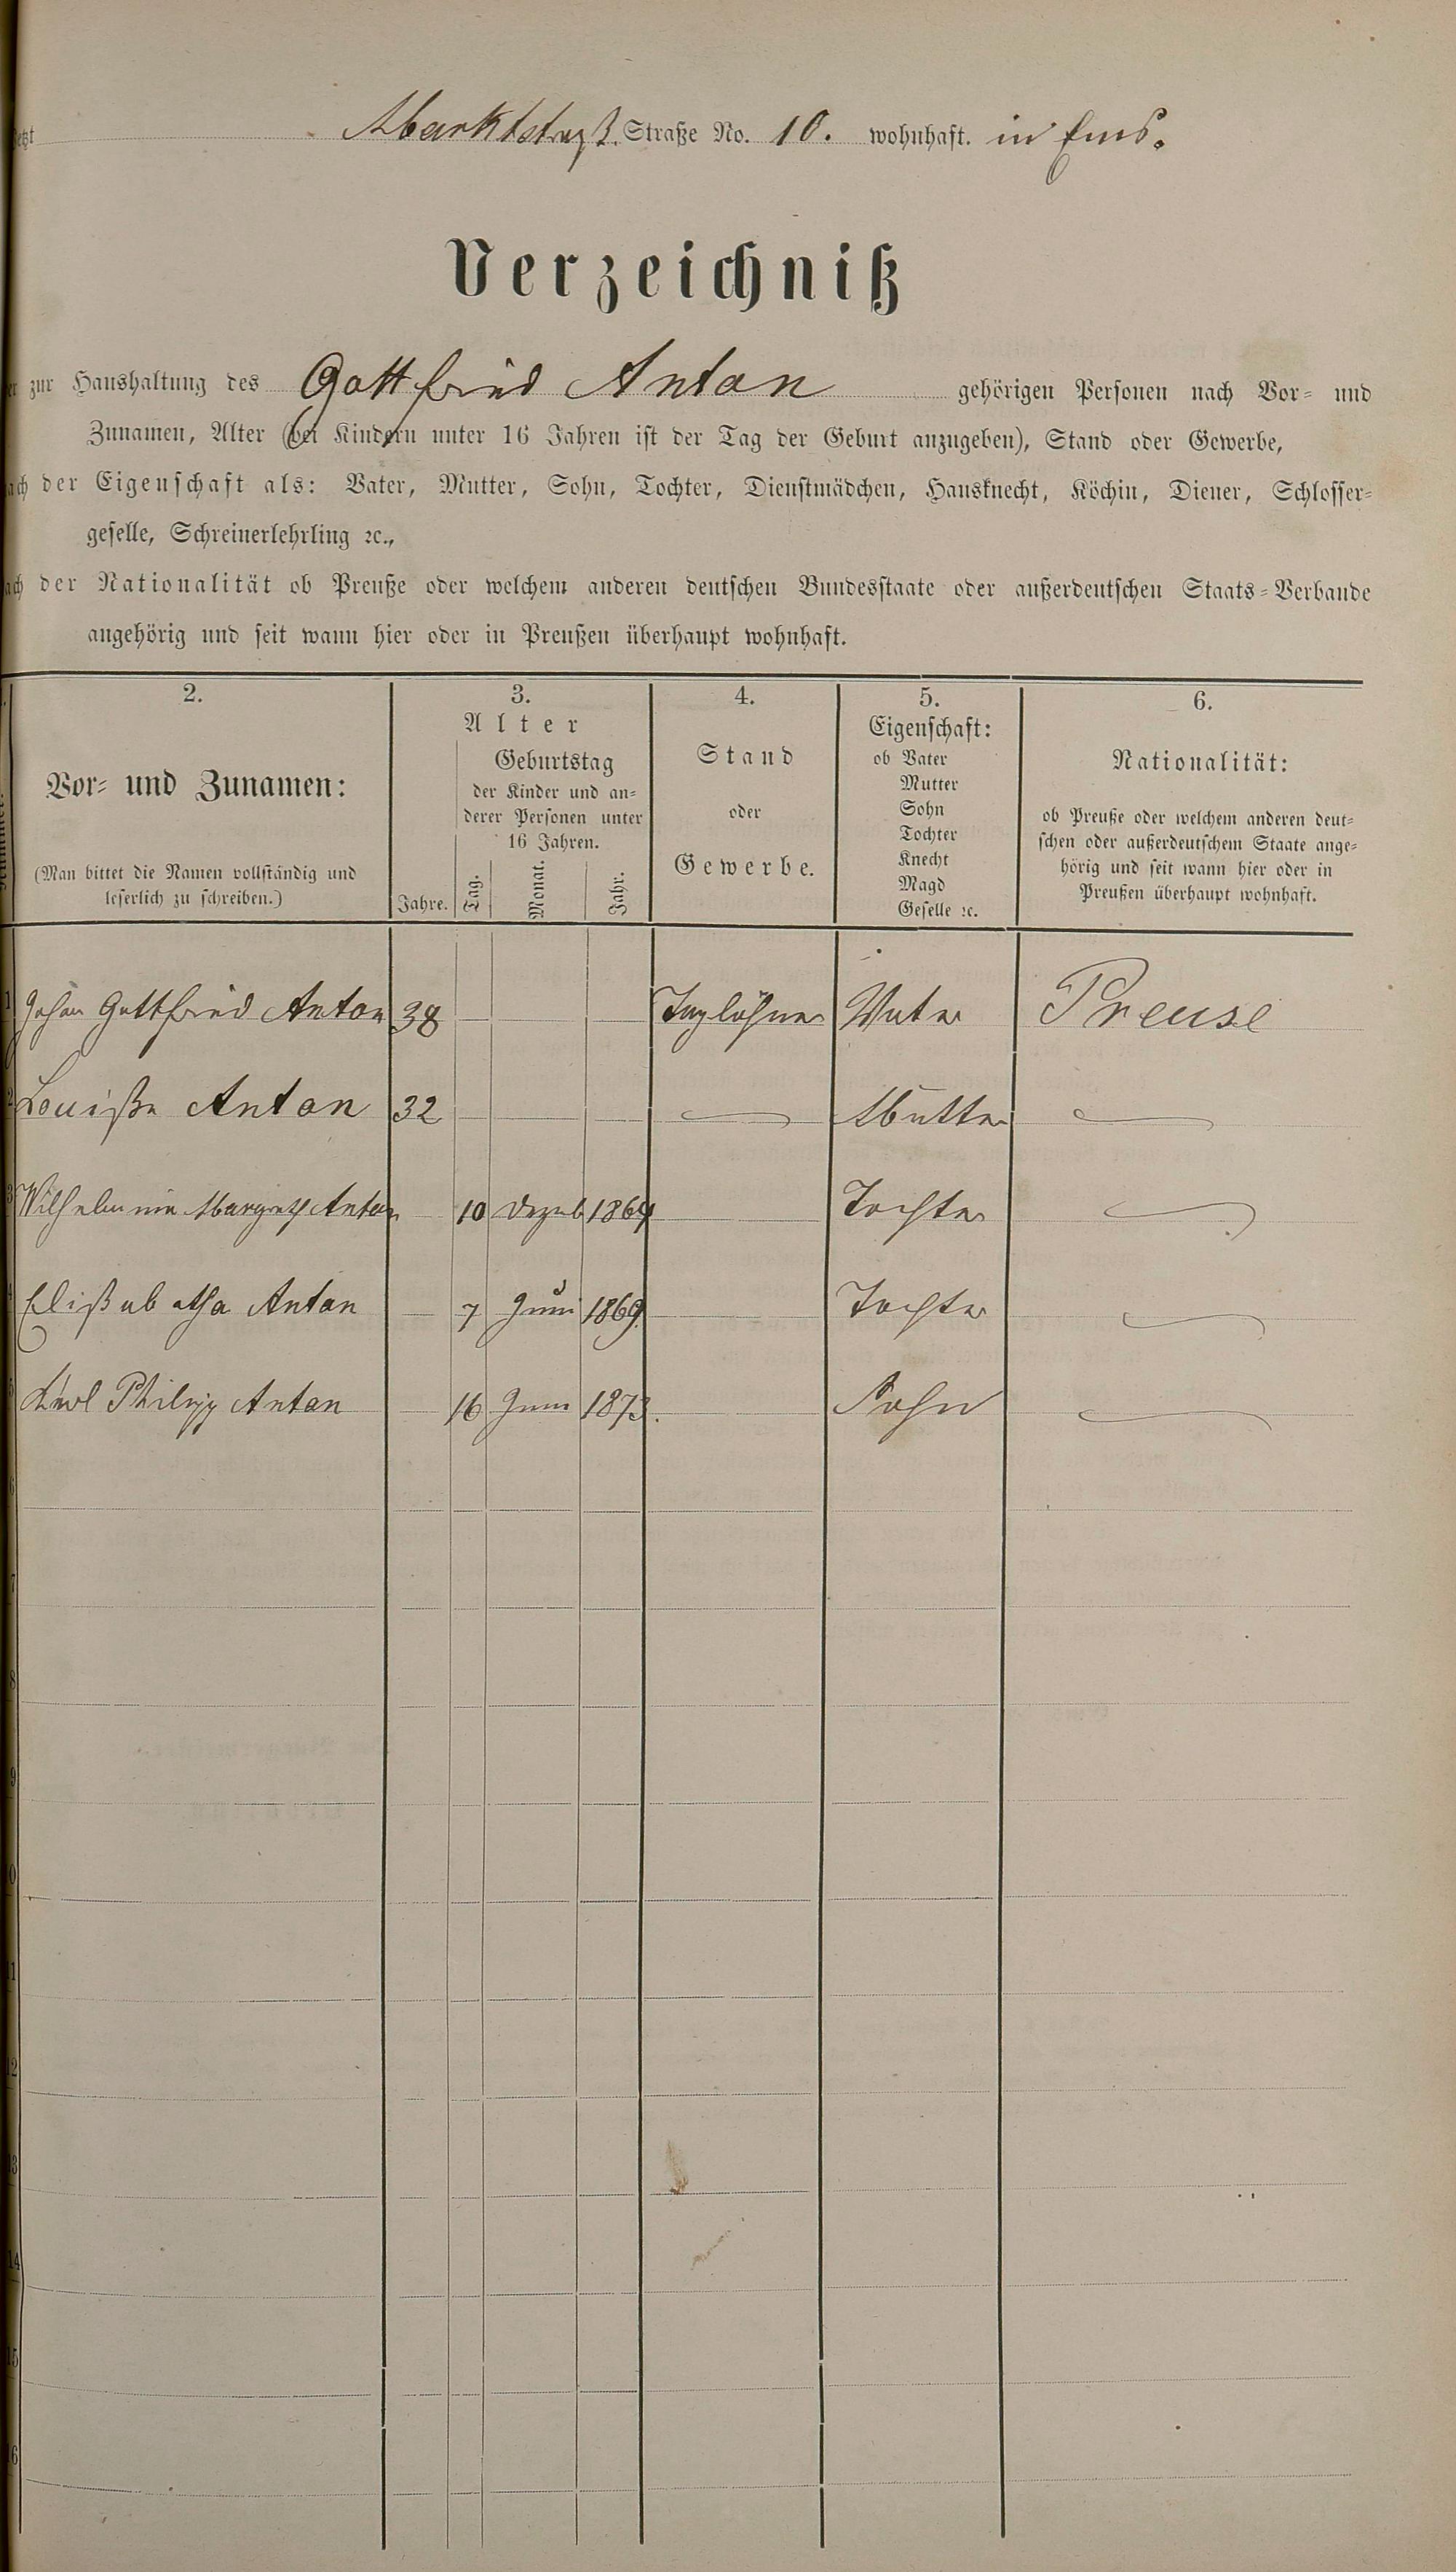 jetzt Marktstraß. Straße No. 10. wohnhaft. in Ems.
Verzeichniß
zur Haushaltung des Gottfried Anton gehörigen Personen nach Vor- und
Zunamen, Alter (bei Kindern unter 16 Jahren ist der Tag der Geburt anzugeben), Stand oder Gewerbe,
nach der Eigenschaft als: Vater, Mutter, Sohn, Tochter, Dienstmädchen, Hausknecht, Köchin, Diener, Schlosser-
geselle, Schreinerlehrling ꝛc.,
nach der Nationalität ob Preuße oder welchem anderen deutschen Bundesstaate oder außerdeutschen Staats-Verbande
angehörig und seit wann hier oder in Preußen überhaupt wohnhaft.
2.
Vor- und Zunamen:
(Man bittet die Namen vollständig und
leserlich zu schreiben.)
3.
Alter
Geburtstag
der Kinder und an-
derer Personen unter
16 Jahren.
Jahre. Tag. Monat. Jahr.
4.
Stand
oder
Gewerbe.
5.
Eigenschaft:
ob Vater
Mutter
Sohn
Tochter
Knecht
Magd
Geselle ꝛc.
6.
Nationalität:
ob Preuße oder welchem anderen deut-
schen oder außerdeutschem Staate ange-
hörig und seit wann hier oder in
Preußen überhaupt wohnhaft.
1 Johan Gottfried Anton 38 Taglöhner Vater Preuse
2 Louiße Anton 32 Mutter
3 Wilhelmine Margreth Anton 10 Dezeb 1864 Tochter
4 Elißabetha Anton 7 Juni 1869 Tochter
5 Karl Philipp Anton 16 Juni 1873. Sohn
6
7
8
9
10
11
12
13
14
15
16